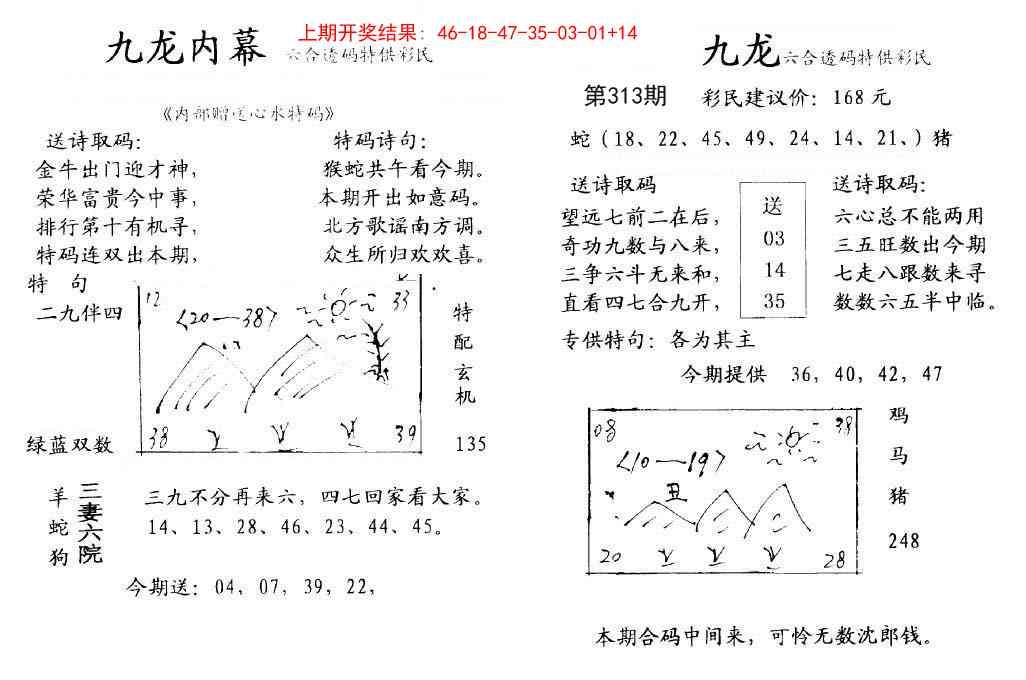 上期开奖结果：46-18-47-35-03-01+14
九龙内幕 六合透码特供彩民
《内部赠送心水特码》
送诗取码：
金牛出门迎才神，
荣华富贵今中事，
排行第十有机寻，
特码连双出本期，
特码诗句：
猴蛇共午看今期。
本期开出如意码。
北方歌谣南方调。
众生所归欢欢喜。
特 句
二九伴四
绿蓝双数
12
33
<20—38>
38
39
特
配
玄
机
135
羊
蛇
狗
三妻六院
三九不分再来六，四七回家看大家。
14、13、28、46、23、44、45。
今期送：04，07，39，22，
九龙六合透码特供彩民
第313期 彩民建议价：168元
蛇（18、22、45、49、24、14、21、）猪
送诗取码
望远七前二在后，
奇功九数与八来，
三争六斗无来和，
直看四七合九开，
送
03
14
35
送诗取码：
六心总不能两用
三五旺数出今期
七走八跟数来寻
数数六五半中临。
专供特句：各为其主
今期提供 36，40，42，47
08
38
<10—19>
丑
20
28
鸡
马
猪
248
本期合码中间来，可怜无数沈郎钱。